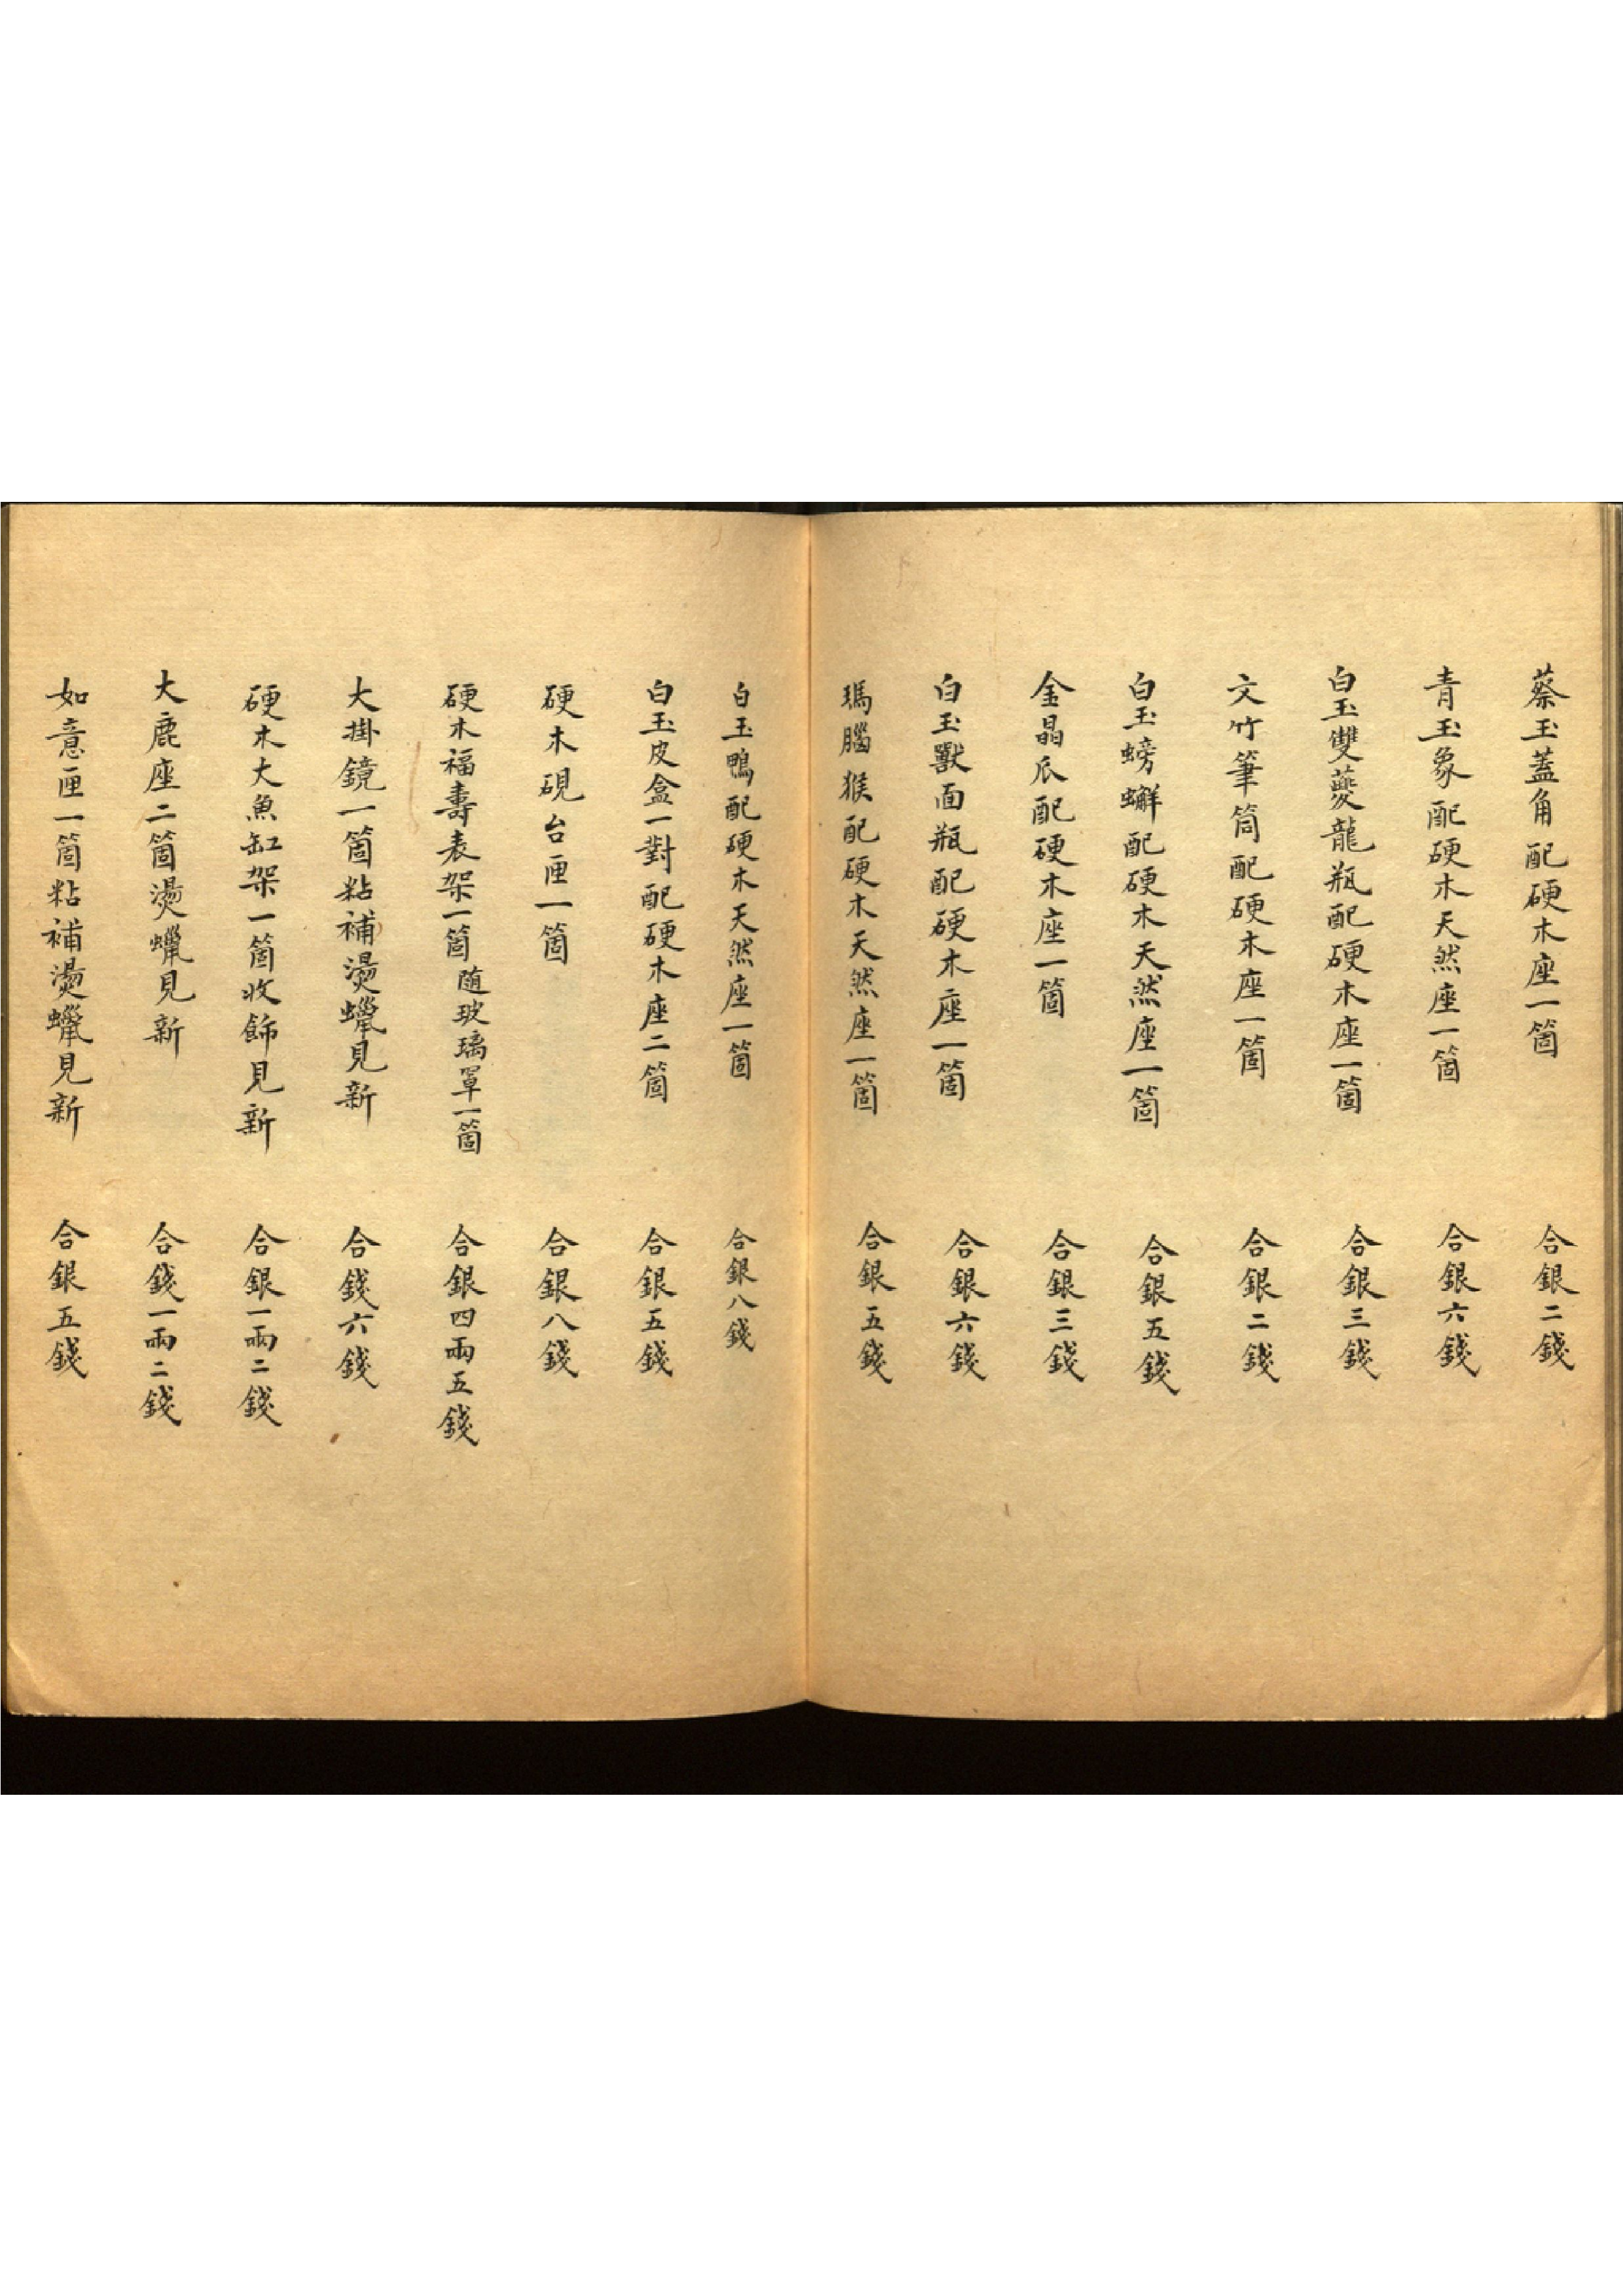 蔡玉蓋角配硬木座一箇　合銀二錢
青玉象配硬木天然座一箇　合銀六錢
白玉雙夔龍瓶配硬木座一箇　合銀三錢
文竹筆筒配硬木座一箇　合銀二錢
白玉螃蠏配硬木天然座一箇　合銀五錢
金晶瓜配硬木座一箇　合銀三錢
白玉獸面瓶配硬木座一箇　合銀六錢
瑪腦猴配硬木天然座一箇　合銀五錢
白玉鴨配硬木天然座一箇　合銀八錢
白玉皮盒一對配硬木座二箇　合銀五錢
硬木硯台匣一箇　合銀八錢
硬木福壽表架一箇随玻璃罩一箇　合銀四兩五錢
大掛鏡一箇粘補燙蠟見新　合錢六錢
硬木大魚缸架一箇收飾見新　合銀一兩二錢
大鹿座二箇燙蠟見新　合錢一兩二錢
如意匣一箇粘補燙蠟見新　合銀五錢